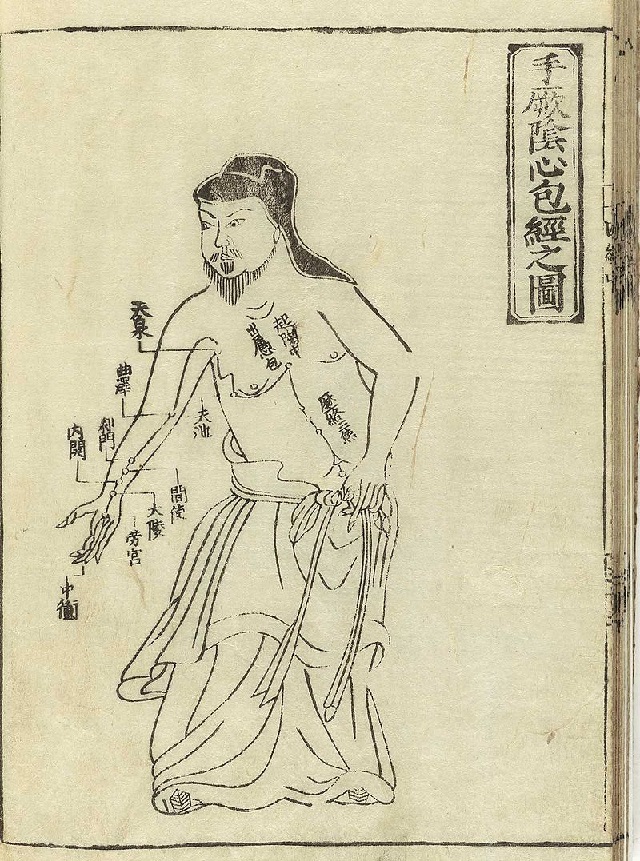 手厥陰心包經之圖
起胸中
歷絡三焦
天池
天泉
曲澤
郄門
內關
間使
大陵
勞宮
中衝